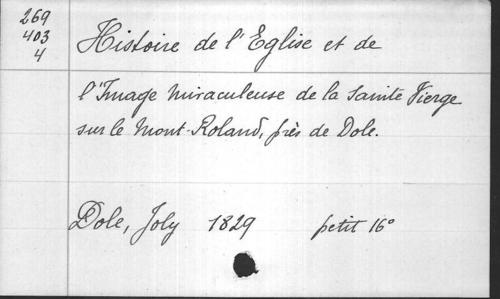 269
403
4
Histoire de l'Eglise et de
l'Image miraculeuse de la Sainte Vierge
sur le Mont-Roland, près de Dole.
Dole, Joly 1829 petit 16°